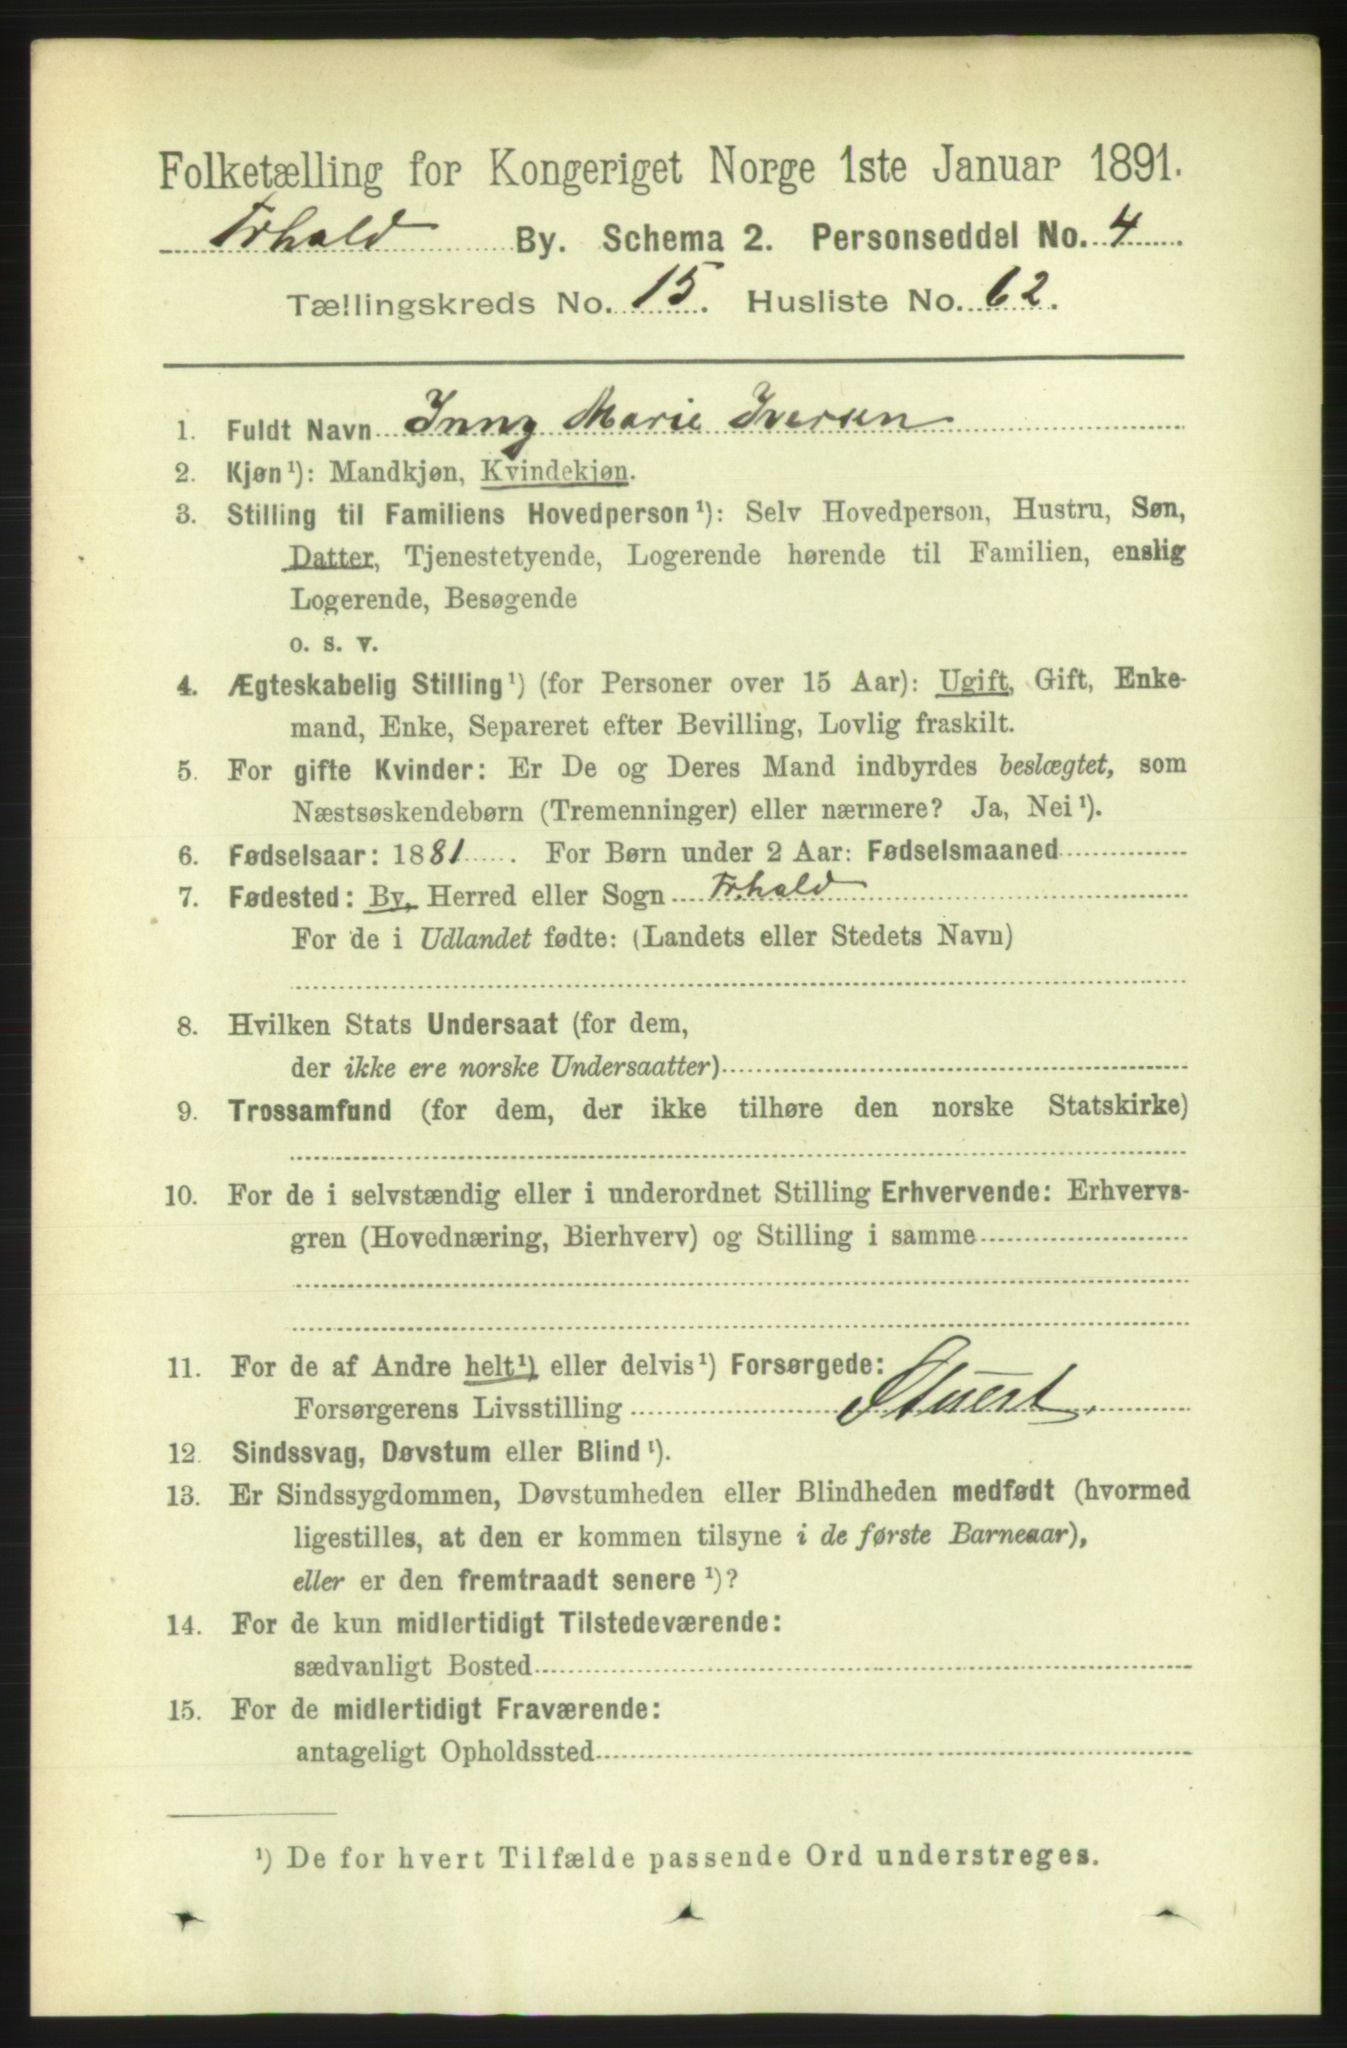 Folketælling for Kongeriget Norge 1ste Januar 1891.
Frhald By. Schema 2. Personseddel No. 4
Tællingskreds No. 15. Husliste No. 62.
1. Fuldt Navn Inny Marie Iversen
2. Kjøn ¹): Mandkjøn, Kvindekjøn.
3. Stilling til Familiens Hovedperson ¹): Selv Hovedperson, Hustru, Søn,
Datter, Tjenestetyende, Logerende hørende til Familien, enslig
Logerende, Besøgende
o. s. v.
4. Ægteskabelig Stilling ¹) (for Personer over 15 Aar): Ugift, Gift, Enke-
mand, Enke, Separeret efter Bevilling, Lovlig fraskilt.
5. For gifte Kvinder: Er De og Deres Mand indbyrdes beslægtet, som
Næstsøskendebørn (Tremenninger) eller nærmere? Ja, Nei ¹).
6. Fødselsaar: 1881. For Børn under 2 Aar: Fødselsmaaned
7. Fødested: By, Herred eller Sogn Frhald
For de i Udlandet fødte: (Landets eller Stedets Navn)
8. Hvilken Stats Undersaat (for dem,
der ikke ere norske Undersaatter)
9. Trossamfund (for dem, der ikke tilhøre den norske Statskirke)
10. For de i selvstændig eller i underordnet Stilling Erhvervende: Erhvervs-
gren (Hovednæring, Bierhverv) og Stilling i samme
11. For de af Andre helt ¹) eller delvis ¹) Forsørgede:
Forsørgerens Livsstilling Stuert.
12. Sindssvag, Døvstum eller Blind ¹).
13. Er Sindssygdommen, Døvstumheden eller Blindheden medfødt (hvormed
ligestilles, at den er kommen tilsyne i de første Barneaar),
eller er den fremtraadt senere ¹)?
14. For de kun midlertidigt Tilstedeværende:
sædvanligt Bosted
15. For de midlertidigt Fraværende:
antageligt Opholdssted
¹) De for hvert Tilfælde passende Ord understreges.